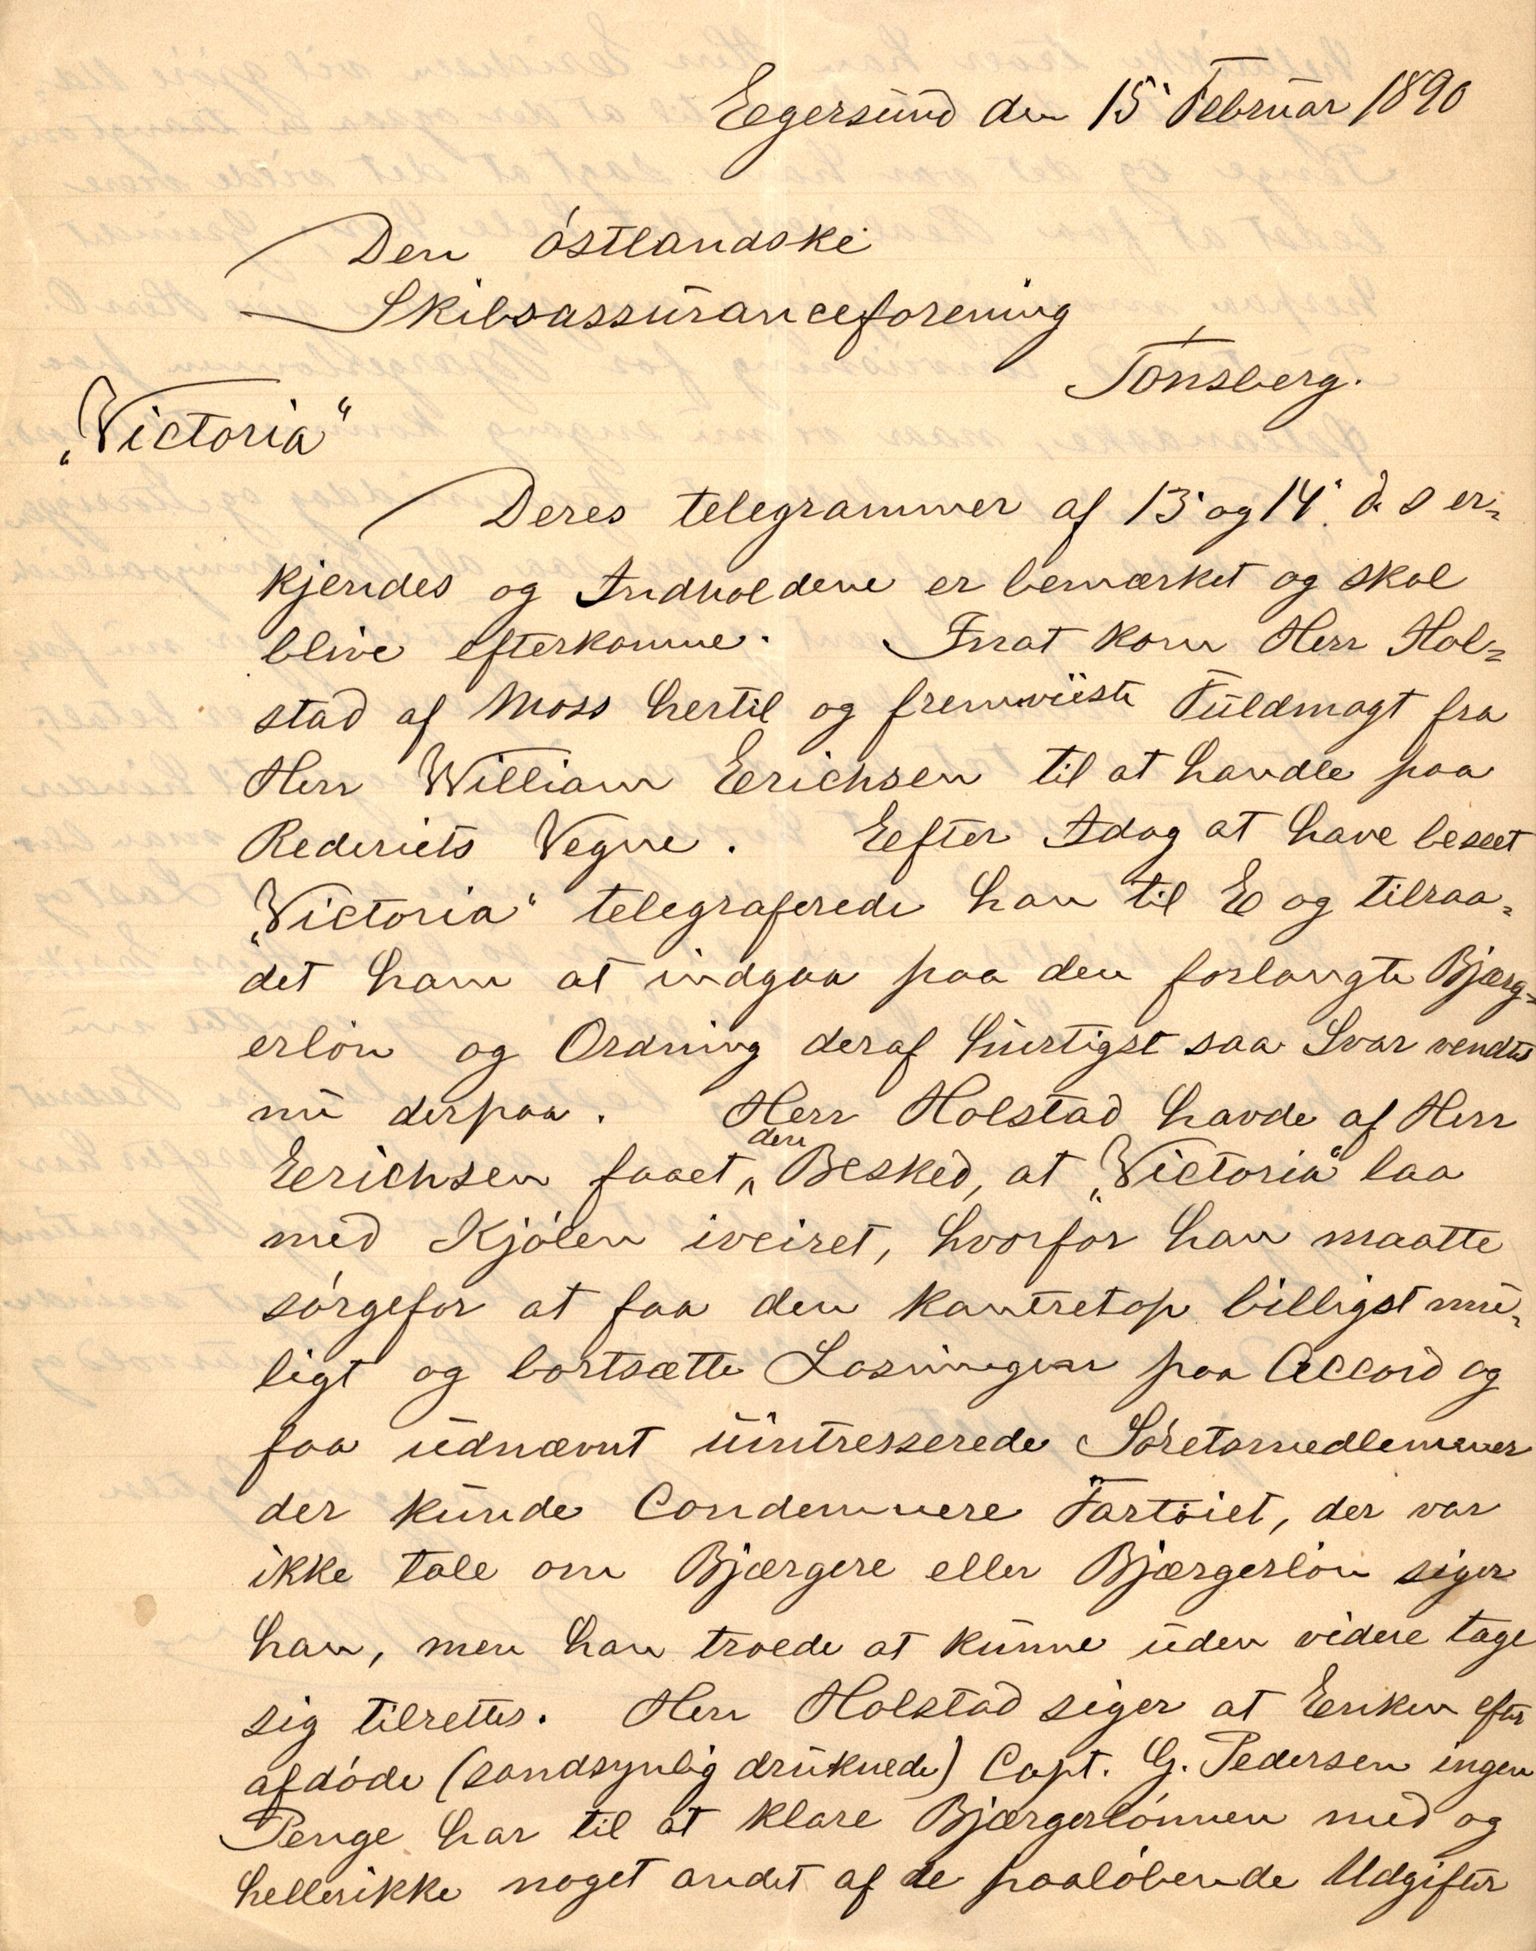 Egersund den 15' Februar 1890
Den östlandske
Skibsassuranceforening
Tönsberg.
„Victoria"
Deres telegrammer af 13' og 14'. d. s er-
kjendes og Indholdene er bemærket og skal
blive efterkomme. Inat kom Herr Hol-
stad af Moss hertil og fremviiste Fuldmagt fra
Herr William Erichsen til at handle paa
Rederiets Vegne. Efter Idag at have beseet
„Victoria" telegraferede han til E og tilraa-
det ham at indgaa paa den forlangte Bjærg-
erlön og Ordning deraf hurtigst saa Svar ventes
nu derpaa. Herr Holstad havde af Herr
Erichsen faaet den Besked, at „Victoria" laa
med Kjölen iveiret, hvorfor han maatte
sörgefor at faa den kantretop billigst mu-
ligt og bortsætte Losningen paa Accord og
faa udnævnt uintresserede Söretsmedlemmer
der kunde Condemnere Fartöiet, der var
ikke tale om Bjærgere eller Bjærgerlön siger
han, men han troede at kunne uden videre tage
sig tilrettes. Herr Holstad siger at Enken efter
afdöde (sandsynlig druknede) Capt. G. Pedersen ingen
Penge har til at klare Bjærgerlönnen med og
hellerikke noget andet af de paalöbende Udgifter